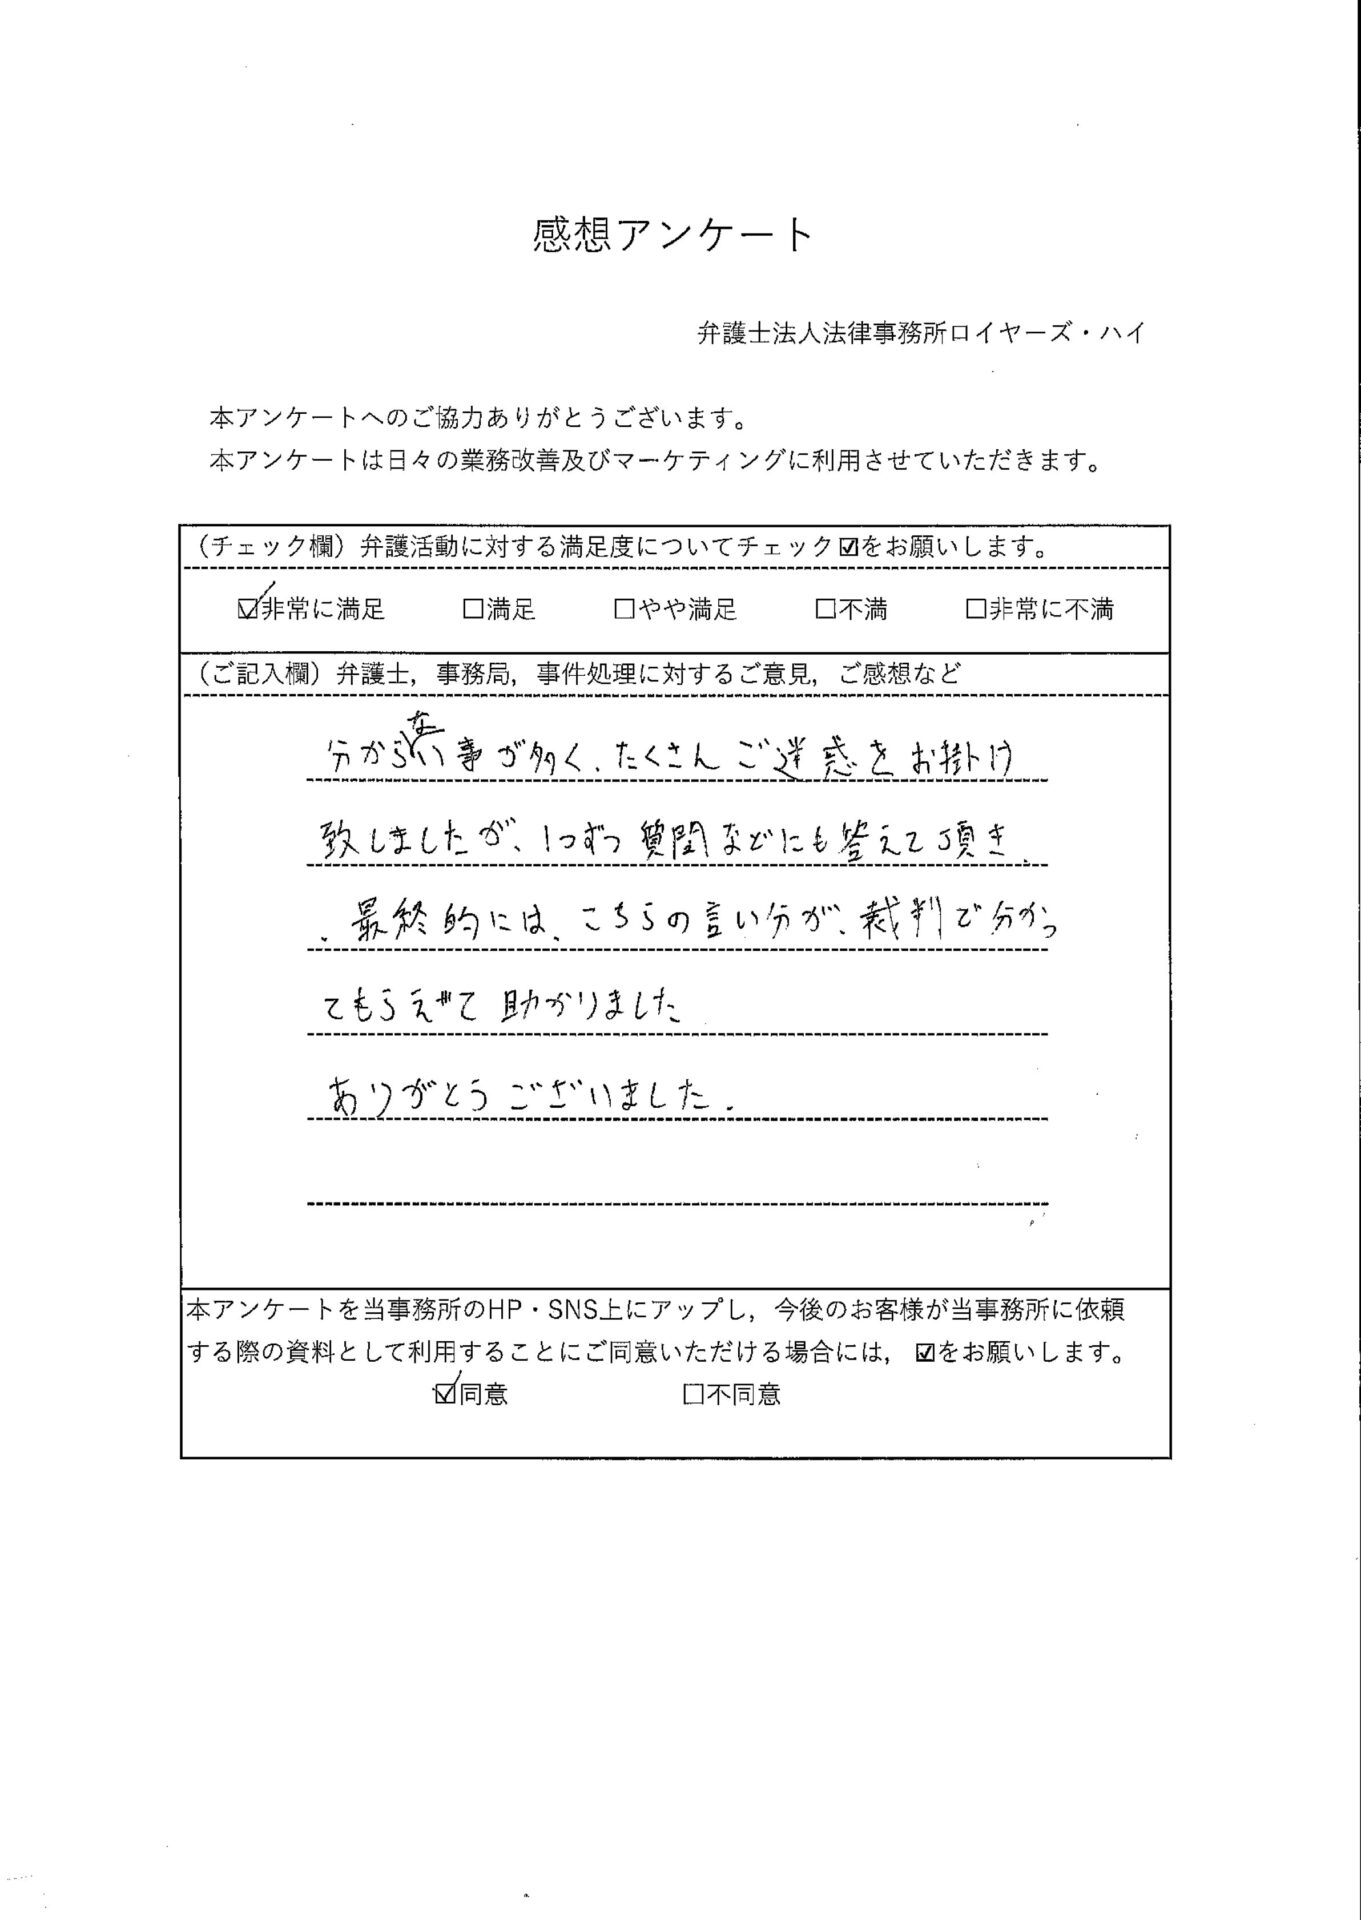 感想アンケート
弁護士法人法律事務所ロイヤーズ・ハイ
本アンケートへのご協力ありがとうございます。
本アンケートは日々の業務改善及びマーケティングに利用させていただきます。
（チェック欄）弁護活動に対する満足度についてチェック☑をお願いします。
☑非常に満足 □満足 □やや満足 □不満 □非常に不満
（ご記入欄）弁護士，事務局，事件処理に対するご意見，ご感想など
分からない事が多く、たくさんご迷惑をお掛け
致しましたが、1つずつ質問などにも答えて頂き、
、最終的には、こちらの言い分が、裁判で分かっ
てもらえて助かりました
ありがとうございました。
本アンケートを当事務所のHP・SNS上にアップし，今後のお客様が当事務所に依頼
する際の資料として利用することにご同意いただける場合には，☑をお願いします。
☑同意 □不同意